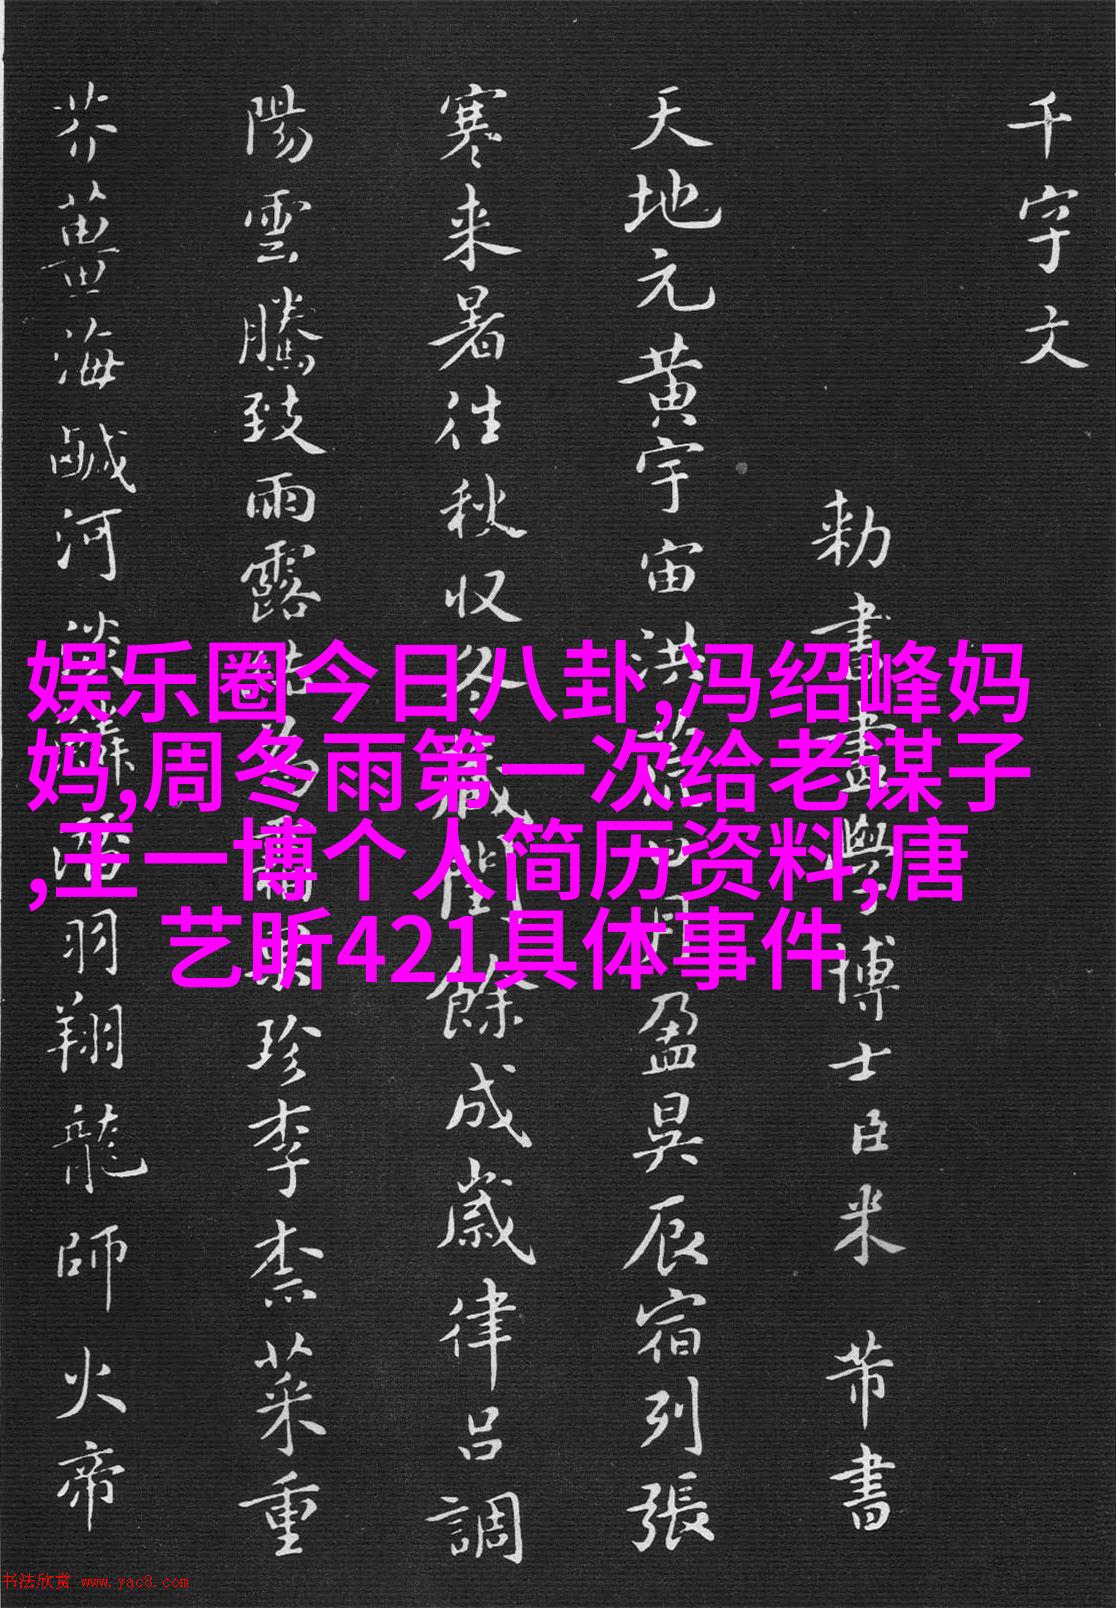 千字文
勅書畫學博士臣米芾書
天地元黄宇宙洪荒月盈昃辰宿列張
寒来暑往秋収冬藏閏餘成歳律吕調
陽雲騰致雨露結為霜果珍李柰菜重
芥薑海鹹河淡鱗潛羽翔龍師火帝
娱乐圈今日八卦,冯绍峰妈
妈,周冬雨第一次给老谋子
,王一博个人简历资料,唐
艺昕421具体事件
书法欣赏 www.yac8.com